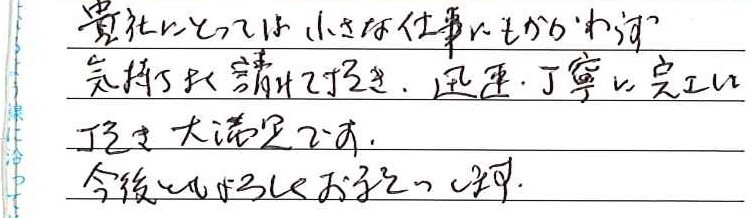 貴社にとっては小さな仕事にもかかわらず
気持ちよく請けて頂き、迅速・丁寧に完工して
頂き大満足です。
今後ともよろしくお手そつします。
線に沿って